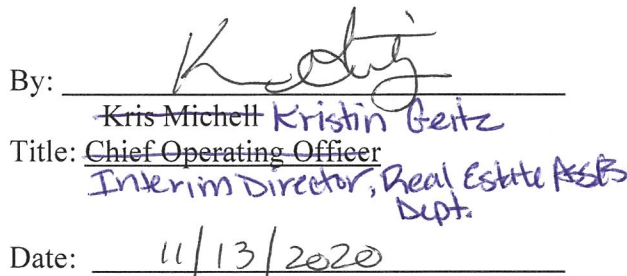 By:
Kris Michell Kristin Geitz
Title: Chief Operating Officer
Interim Director, Real Estate Assets
Dept.
Date: 11/13/2020